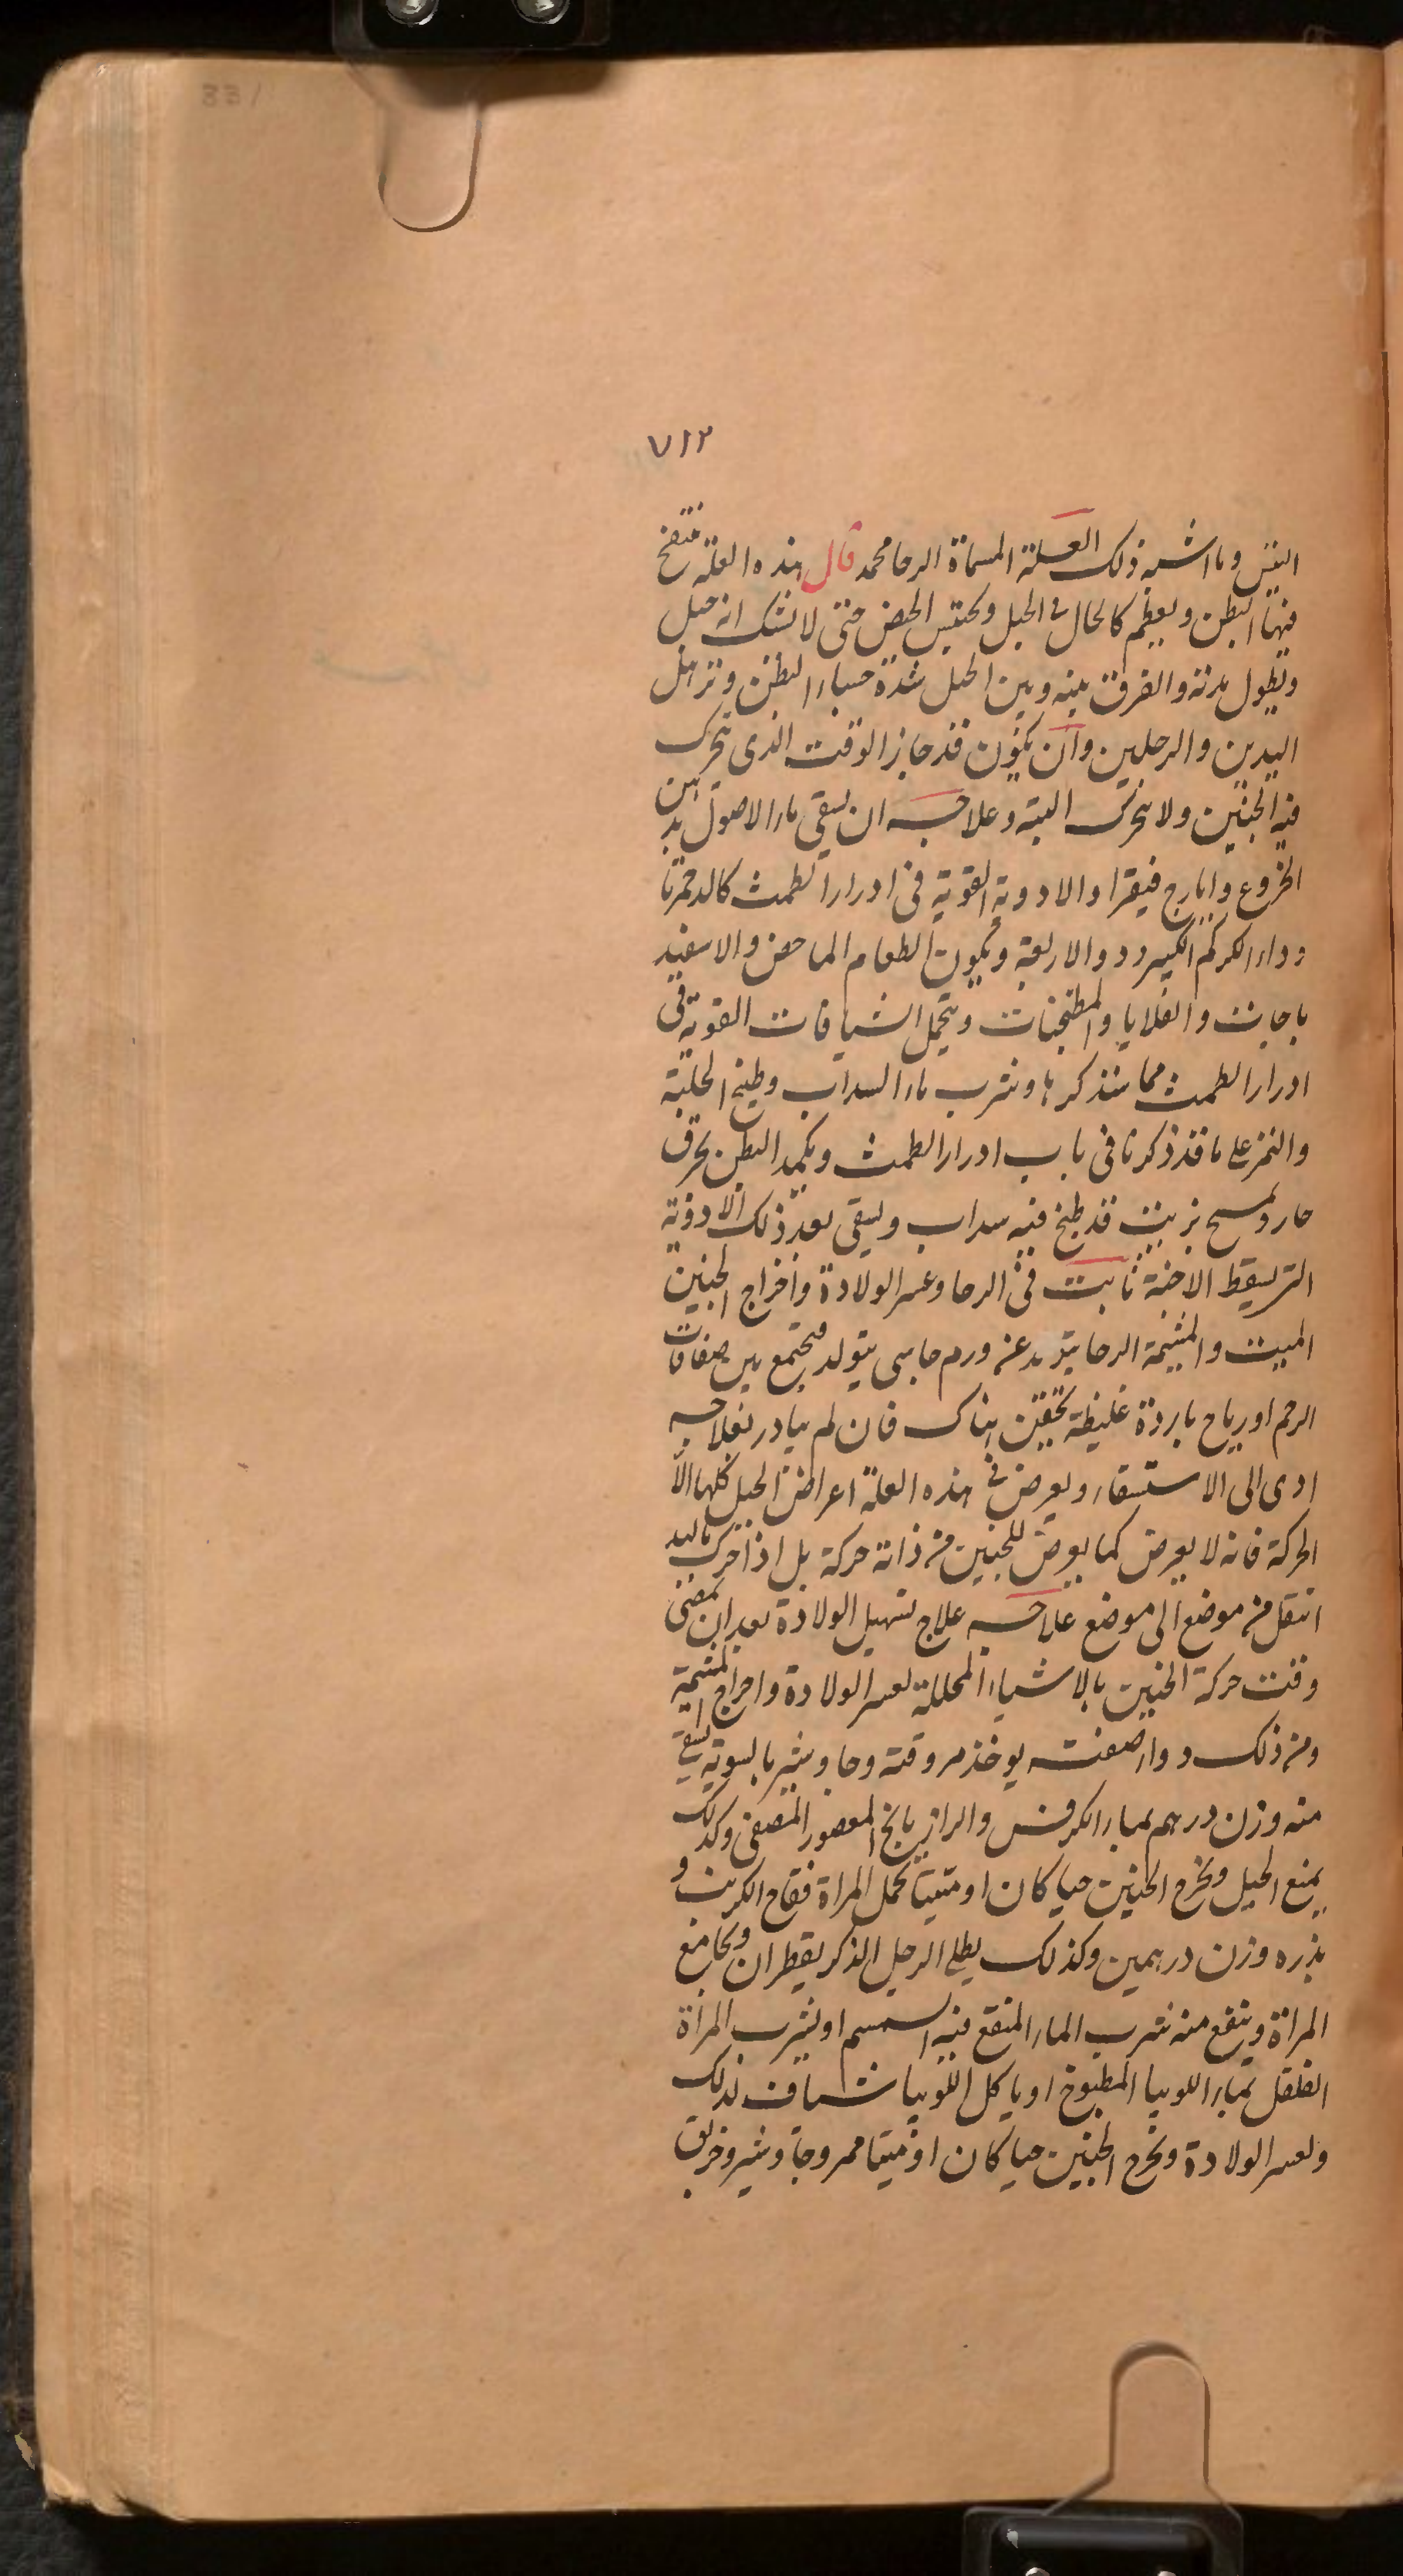 331
٧١٢
التين وما اشبه ذلك العلة المسماة الرحا محمد قال هذه العلة ينتفخ
فيها البطن ويعظم كالحال فى الحبل ويحتبس الحيض حتى لا نشك انه حبل
ويطول مدته والفرق بينه وبين الحبل شدة جساء البطن وترهل
اليدين والرجلين وان يكون قد جاز الوقت الذى يتحرك
فيه الجنين ولا يتحرك البتة وعلاجه ان يسقى ماء الاصول بدهن
الخروع وايارج فيقرا والادوية القوية فى ادرار الطمث كالدحمرثا
ودواء الكركم الكبير ودواء الاربعة ويكون الطعام الماحض والاسفيد
باجات والقلايا والمطجنات ويتحمل الشيافات القوية فى
ادرار الطمث مما سنذكرها ونشرب ماء السداب وطبيخ الحلبة
والتمر على ما قد ذكرنا فى باب ادرار الطمث ويكمد البطن بخرق
حار ويمسح بزيت قد طبخ فيه سداب ويسقى بعد ذلك الادوية
التى يسقط الاجنة ثابت فى الرحا وعسر الولادة واخراج الجنين
الميت والمشيمة الرحا يتولد عن ورم جاسى يتولد فيجتمع بين صفاقات
الرحم او رياح باردة غليظة تحتقن هناك فان لم يبادر بعلاجه
ادى الى الاستسقاء ويعرض فى هذه العلة اعراض الحبل كلها الا
الحركة فانه لا يعرض كما يعرض للجنين من ذاته حركة بل اذا حرك باليد
انتقل من موضع الى موضع علاجه علاج تسهيل الولادة بعد ان يمضى
وقت حركة الجنين بالاشياء المحللة لعسر الولادة واخراج المشيمة
ومن ذلك دواء صفته يوخذ مر وقنة وجاوشير بالسوية يسقى
منه وزن درهم بماء الكرفس والرازيانج المعصور المصفى وكذلك
يمنع الحبل ويخرج الجنين حيا كان او ميتا تحمل المراة فقاح الكرنب و
بذره وزن درهمين وكذلك يطلى الرجل الذكر بقطران ويجامع
المراة وينفع منه شرب الماء المنقع فيه السمسم او نشرب المراة
الفلفل بماء اللوبيا المطبوخ او ياكل اللوبيا شياف لذلك
ولعسر الولادة ويخرج الجنين حيا كان او ميتا مر وجاوشير وخربق